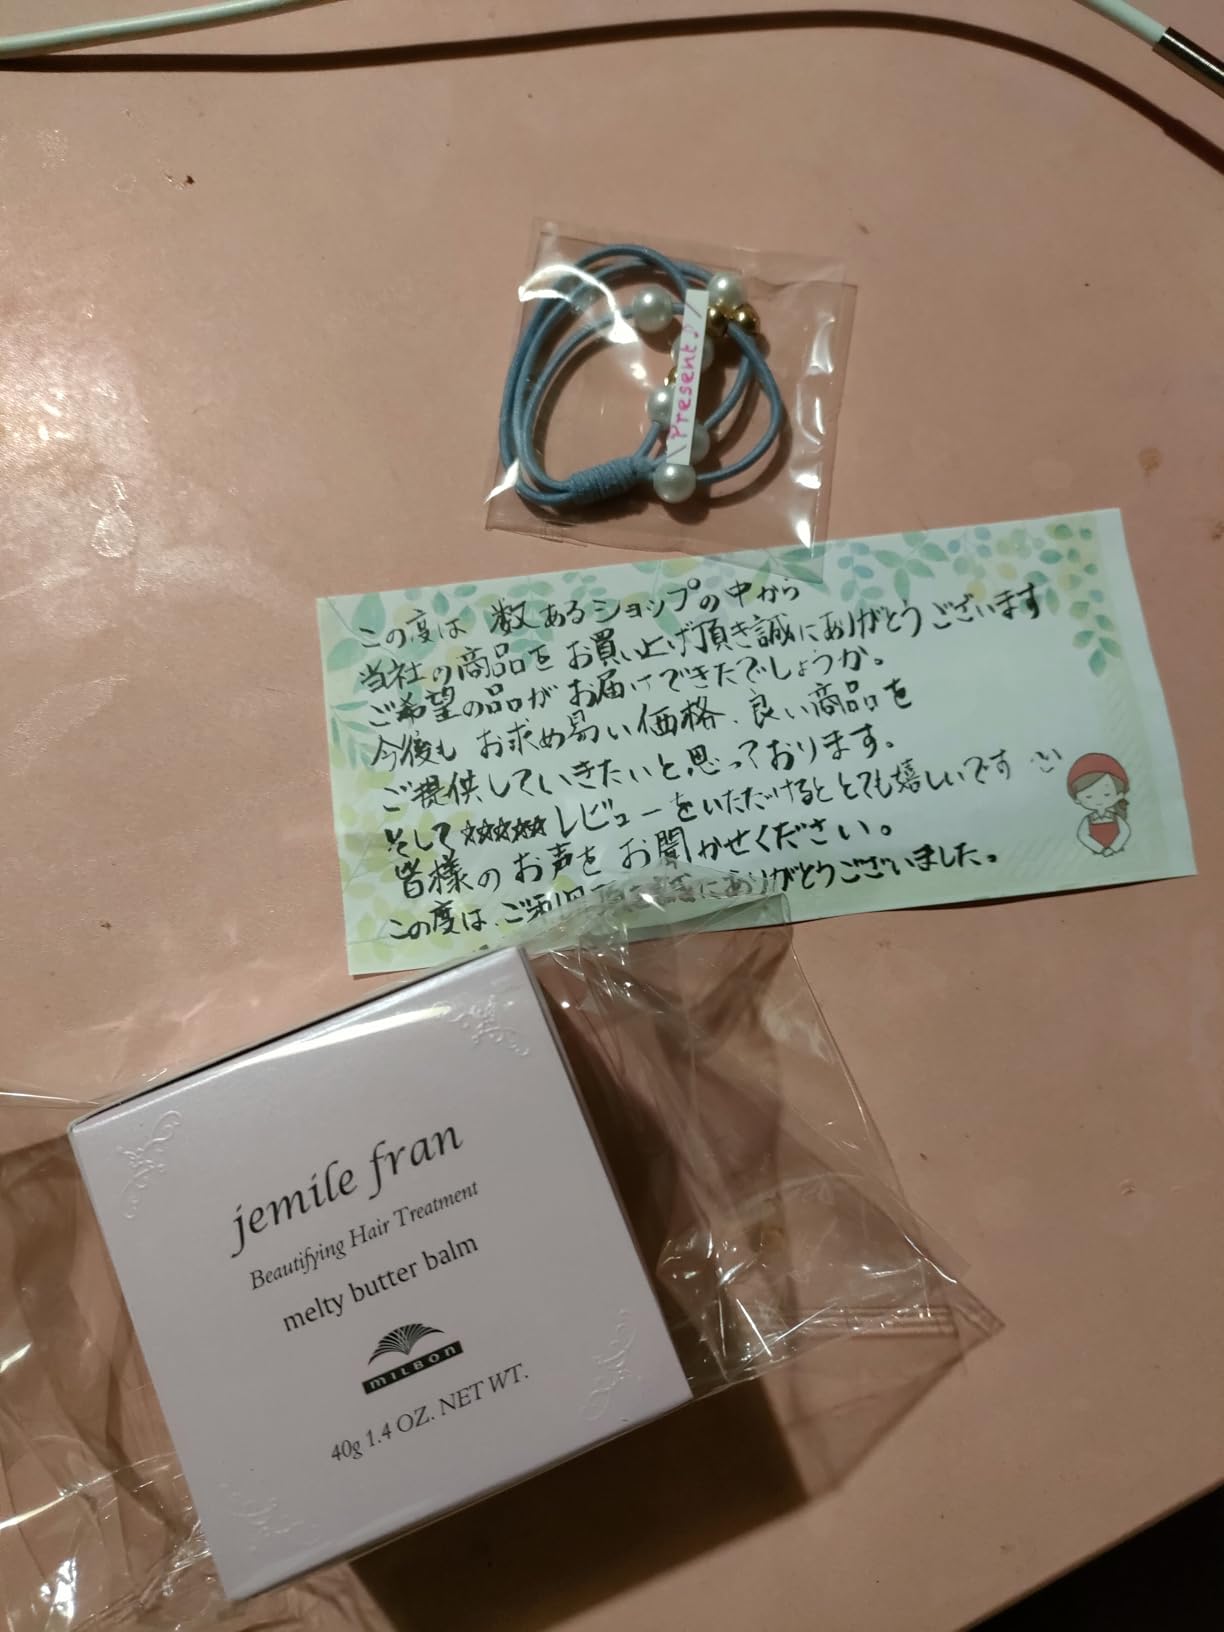 \Present♪/
この度は 数あるショップの中から
当社の商品をお買い上げ頂き誠にありがとうございます
ご希望の品がお届けできたでしょうか。
今後も お求め易い価格、良い商品を
ご提供していきたいと思っております。
そして☆☆☆☆☆レビューをいただけるととても嬉しいです
皆様のお声をお聞かせください。
この度は、ご利用頂き誠にありがとうございました。
jemile fran
Beautifying Hair Treatment
melty butter balm
MILBON
40g 1.4 OZ. NET WT.